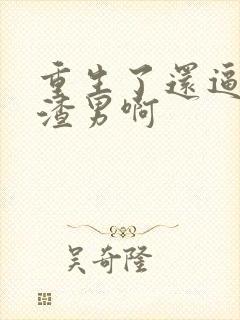 重生了還逼
渣男啊
吴奇隆